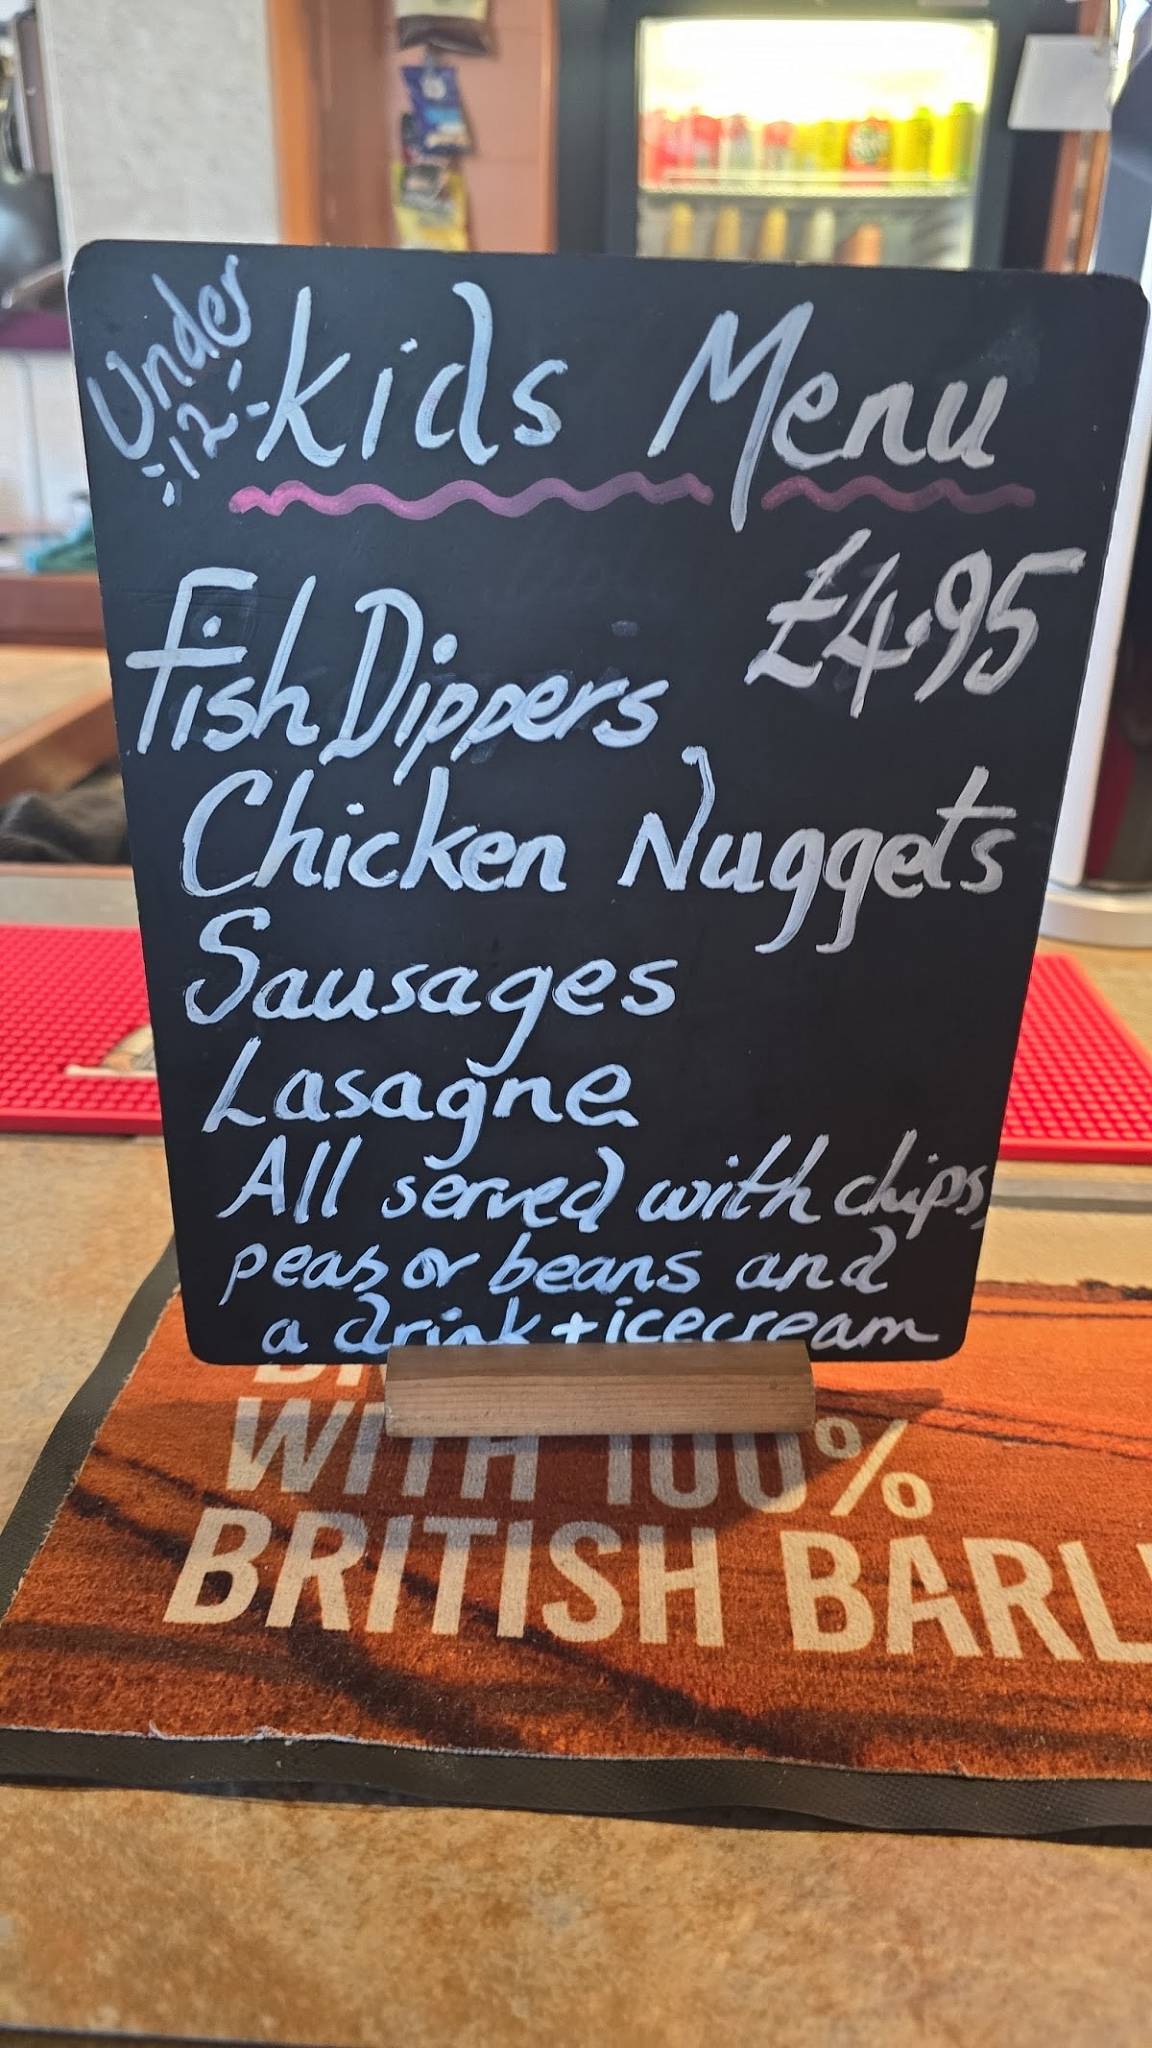 Under
12
Kids Menu
£4.95
Fish Dippers
Chicken Nuggets
Sausages
Lasagne
All served with chips,
peas or beans and
a drink + icecream
WITH 100%
BRITISH BARL